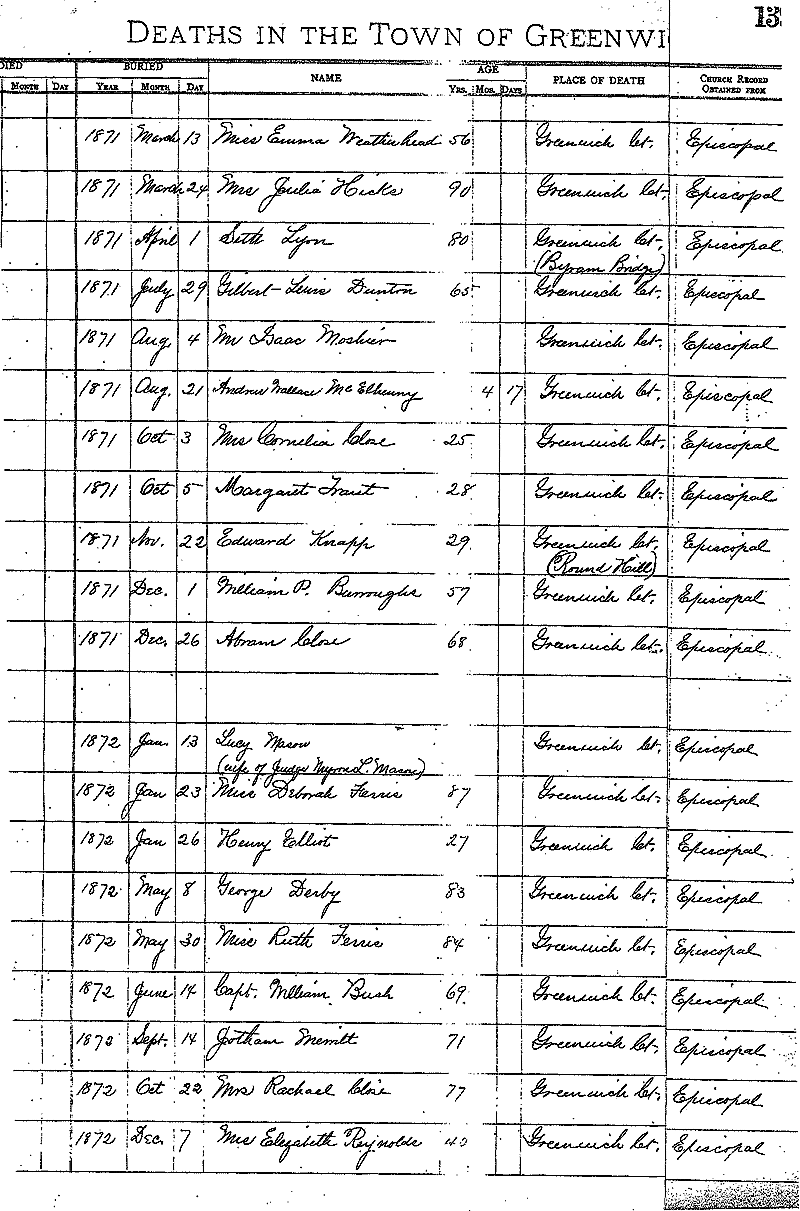 13
DEATHS IN THE TOWN OF GREENWI
DIED BURIED NAME AGE PLACE OF DEATH CHURCH RECORD OBTAINED FROM
MONTH DAY YEAR MONTH DAY YRS. MOS. DAYS
1871 March 13 Miss Emma Weatherhead 56 Greenwich Ct. Episcopal
1871 March 24 Mrs Julia Hicks 90 Greenwich Ct. Episcopal
1871 April 1 Seth Lyon 80 Greenwich Ct. Episcopal
(Byram Bridge)
1871 July 29 Gilbert Lewis Dunton 65 Greenwich Ct. Episcopal
1871 Aug. 4 Mr Isaac Moshier Greenwich Ct. Episcopal
1871 Aug. 21 Andrew Wallace McElhenny 4 17 Greenwich Ct. Episcopal
1871 Oct 3 Mrs Cornelia Close 25 Greenwich Ct. Episcopal
1871 Oct 5 Margaret 28 Greenwich Ct. Episcopal
1871 Nov. 22 Edward Knapp 29 Greenwich Ct. Episcopal
(Round Hill)
1871 Dec. 1 William P. Burroughs 57 Greenwich Ct. Episcopal
1871 Dec. 26 Abram Close 68 Greenwich Ct. Episcopal
1872 Jan. 13 Lucy Mason Greenwich Ct. Episcopal
(wife of Judge Myron L. Mason)
1872 Jan 23 Miss Deborah Ferris 87 Greenwich Ct. Episcopal
1872 Jan 26 Henry Elliot 27 Greenwich Ct. Episcopal
1872 May 8 George Derby 83 Greenwich Ct. Episcopal
1872 May 30 Miss Ruth Ferris 84 Greenwich Ct. Episcopal
1872 June 14 Capt. William Bush 69 Greenwich Ct. Episcopal
1872 Sept. 14 Jotham Merritt 71 Greenwich Ct. Episcopal
1872 Oct 22 Mrs Rachael Close 77 Greenwich Ct. Episcopal
1872 Dec. 7 Mrs Elizabeth Reynolds Greenwich Ct. Episcopal